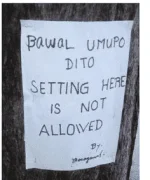 BAWAL UMUPO
DITO
SETTING HERE
IS NOT
ALLOWED
By: